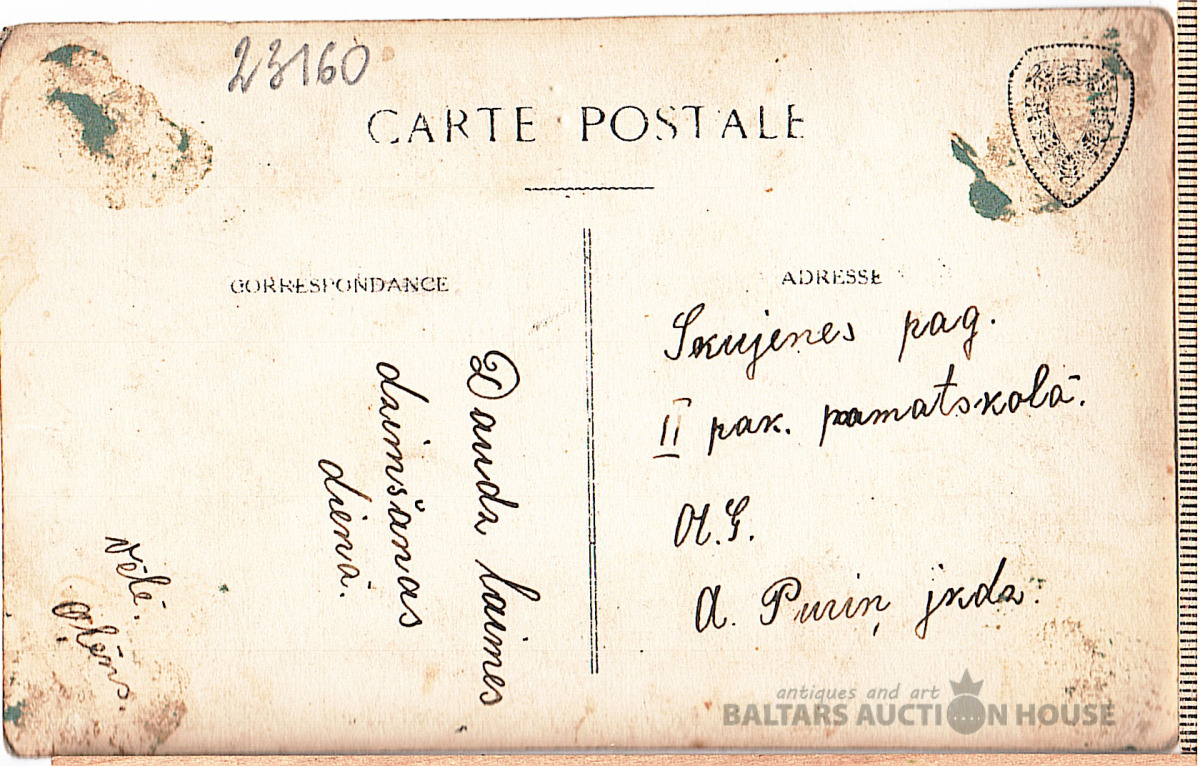 23160
CARTE POSTALE
CORRESPONDANCE
ADRESSE
Daudz laimes
dzimšanas
dienā.
vēlē.
Skujenes pag.
II pak. pamatskolā.
A. Puriņ jkdz.
antiques and art
BALTARS AUCTION HOUSE